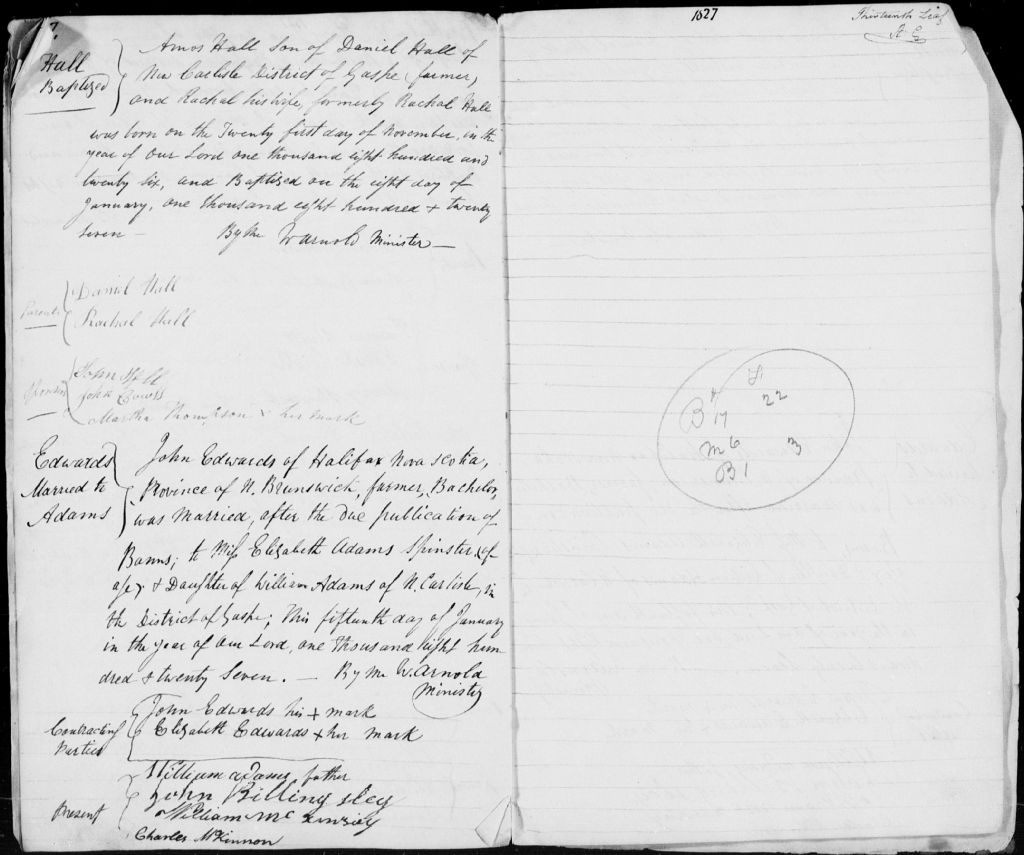 Hall
Baptized
Amos Hall Son of Daniel Hall of
New Carlisle District of Gaspe (farmer,
and Rachal his wife, formerly Rachal Hall
was born on the Twenty first day of November, in the
year of Our Lord one thousand eight hundred and
twenty six, and Baptized on the eight day of
January, one thousand eight hundred + twenty
Seven — By Me W Arnold Minister —
Parents
Daniel Hall
Rachal Hall
Sponsors
John
John
Martha Thompson x her mark
Edwards
Married to
Adams
John Edwards of Halifax Nova Scotia,
Province of N. Brunswick, farmer, Bachelor,
was Married, after the due publication of
Banns; to Miss Elizabeth Adams Spinster, (of
age) + Daughter of William Adams of N. Carlisle, in
the District of Gaspe; this fifteenth day of January
in the year of Our Lord, one thousand Eight hun
dred & twenty Seven. — By Me W. Arnold
Minister
Contracting
Parties
John Edwards his + mark
Elizabeth Edwards + her mark
Present
William Adams father
John Billingsley
William Mc
Charles McKinnon
1827
Thirteenth Leaf
B 17
22
M 6
3
B 1